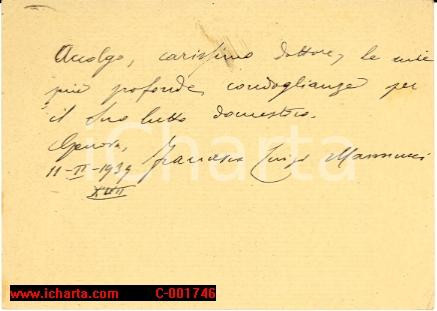 Accolga, carissimo dottore, le mie
più profonde condoglianze per
il Suo lutto domestico.
Genova, Francesco Luigi Mannucci
11-II-1939
XVII
iCharta
www.icharta.com C-001746